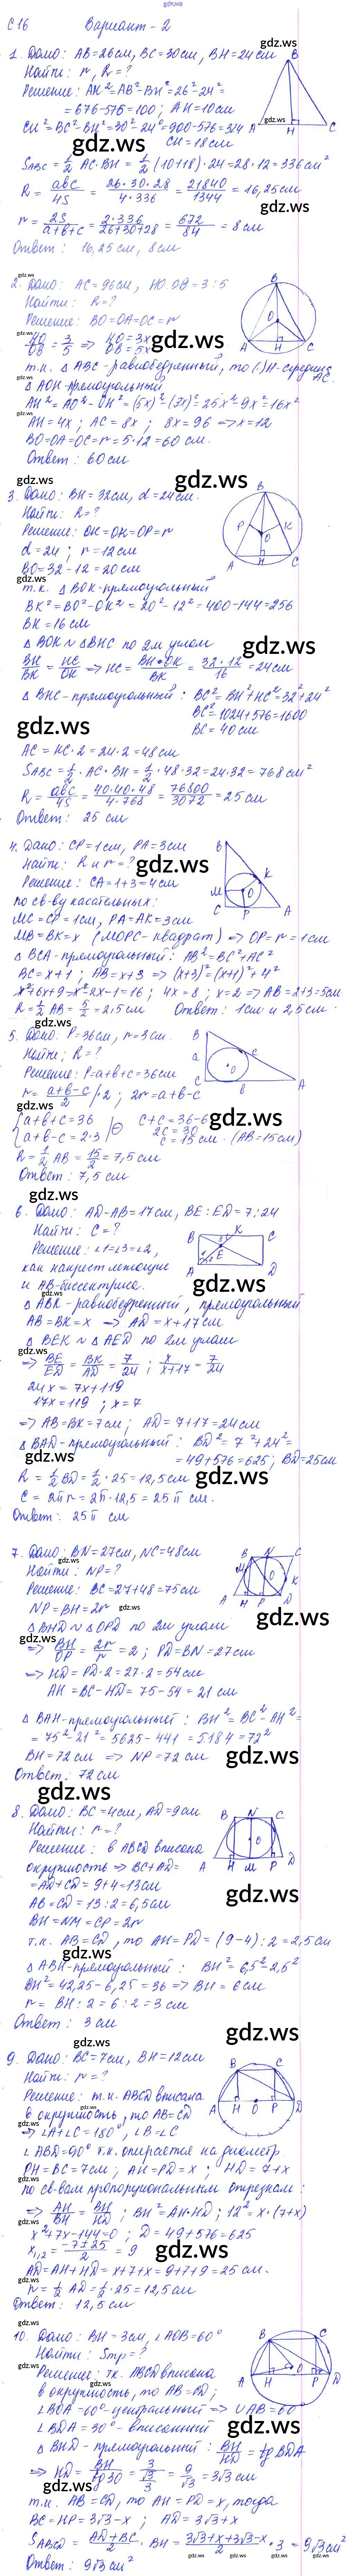 С 16 Вариант - 2
1. Дано: AB=26см, BC=30см, BH=24см
Найти: r, R=?
Решение: AH²=AB²-BH²=26²-24²=
=676-576=100; AH=10см
CH²=BC²-BH²=30²-24²=900-576=324
CH=18см
S_ABC=1/2 AC·BH=1/2(10+18)·24=28·12=336см²
R=abc/4S=26·30·28/4·336=21840/1344=16,25см
r=2S/a+b+c=2·336/26+30+28=672/84=8см
Ответ: 16,25см, 8см
2. Дано: AC=96см, HO:OB=3:5
Найти: R=?
Решение: BO=OA=OC=r
HO/OB=3/5 ⇒ HO=3x OB=5x
т.к. △ABC-равнобедренный, то (·)H-середина AC.
△AOH-прямоугольный
AH²=AO²-OH²=(5x)²-(3x)²=25x²-9x²=16x²
AH=4x; AC=8x; 8x=96 ⇒ x=12
BO=OA=OC=r=5·12=60см.
Ответ: 60см
3. Дано: BH=32см, d=24см.
Найти: R=?
Решение: OH=OK=OP=r
d=24; r=12см
BO=32-12=20см
т.к. △BOK-прямоугольный
BK²=BO²-OK²=20²-12²=400-144=256
BK=16см
△BOK~△BHC по 2м углам
BH/BK=HC/OK ⇒ HC=BH·OK/BK=32·12/16=24см
△BHC-прямоугольный: BC²=BH²+HC²=32²+24²
BC²=1024+576=1600
BC=40см
AC=HC·2=24·2=48см
S_ABC=1/2·AC·BH=1/2·48·32=24·32=768см²
R=abc/4S=40·40·48/4·768=76800/3072=25см
Ответ: 25см
4. Дано: CP=1см, PA=3см
Найти: R и r=?
Решение: CA=1+3=4см
по св-ву касательных:
MC=CP=1см, PA=AK=3см
MB=BK=x (MOPC-квадрат) ⇒ OP=r=1см
△BCA-прямоугольный: AB²=BC²+AC²
BC=x+1; AB=x+3 ⇒ (x+3)²=(x+1)²+4²
x²+6x+9-x²-2x-1=16; 4x=8; x=2 ⇒ AB=2+3=5см
R=1/2 AB=5/2=2,5см Ответ: 1см и 2,5см.
5. Дано: P=36см, r=3см.
Найти: R=?
Решение: P=a+b+c=36см
r=a+b-c/2 |·2; 2r=a+b-c
{a+b+c=36 a+b-c=2·3 |⊖ c+c=36-6
2c=30
c=15см. (AB=15см)
R=1/2 AB=15/2=7,5см
Ответ: 7,5см
6. Дано: AD-AB=17см, BE:ED=7:24
Найти: C=?
Решение: ∠1=∠3=∠2,
как накрест лежащие
и AB-биссектриса.
△ABK-равнобедренный, прямоугольный
AB=BK=x ⇒ AD=x+17см
△BEK~△AED по 2м углам
⇒ BE/ED=BK/AD=7/24; x/x+17=7/24
24x=7x+119
17x=119; x=7
⇒ AB=BK=7см; AD=7+17=24см
△BAD-прямоугольный: BD²=7²+24²=
=49+576=625; BD=25см
R=1/2 BD=1/2·25=12,5см
C=2πr=2π·12,5=25π см.
Ответ: 25π см
7. Дано: BN=27см, NC=48см
Найти: NP=?
Решение: BC=27+48=75см
NP=BH=2r
△BHD~△OPD по 2м углам
⇒ BH/OP=2r/r=2; PD=BN=27см
⇒ HD=PD·2=27·2=54см
AH=BC-HD=75-54=21см
△BAH-прямоугольный: BH²=BC²-AH²=
=75²-21²=5625-441=5184=72²
BH=72см ⇒ NP=72см
Ответ: 72см
8. Дано: BC=4см, AD=9см
Найти: r=?
Решение: в ABCD вписана
окружность ⇒ BC+AD=
=AD+CD=9+4=13см
AB=CD=13:2=6,5см
BH=NM=CP=2r
т.к. AB=CD, то AH=PD=(9-4):2=2,5см
△ABH-прямоугольный: BH²=6,5²-2,5²
BH²=42,25-6,25=36 ⇒ BH=6см
r=BH:2=6:2=3см
Ответ: 3см
9. Дано: BC=7см, BH=12см
Найти: r=?
Решение: т.к. ABCD вписана
в окружность, то AB=CD
⇒ ∠A+∠C=180°, ∠B=∠C
∠ABD=90° т.к. опирается на диаметр
PH=BC=7см; AH=PD=x; HD=7+x
по св-вам пропорциональным отрезкам:
⇒ AH/BH=BH/HD; BH²=AH·HD; 12²=x·(7+x)
x²+7x-144=0; D=49+576=625
x1,2=-7±25/2=9
AD=AH+HD=x+7+x=9+7+9=25см.
r=1/2 AD=1/2·25=12,5см
Ответ: 12,5см
10. Дано: BH=3см, ∠AOB=60°
Найти: Sтр=?
Решение: т.к. ABCD вписана
в окружность, то AB=CD;
∠BOA=60°-центральный ⇒ ∪AB=60°
∠BDA=30°-вписанный
△BHD-прямоугольный: BH/HD=tg BDA
⇒ HD=BH/tg30=3/√3/3=9/√3=3√3см
т.к. AB=CD, то AH=PD=x, тогда
BC=HP=3√3-x; AD=3√3+x
S_ABCD=AD+BC/2·BH=3√3+x+3√3-x/2·3=9√3см²
Ответ: 9√3см²